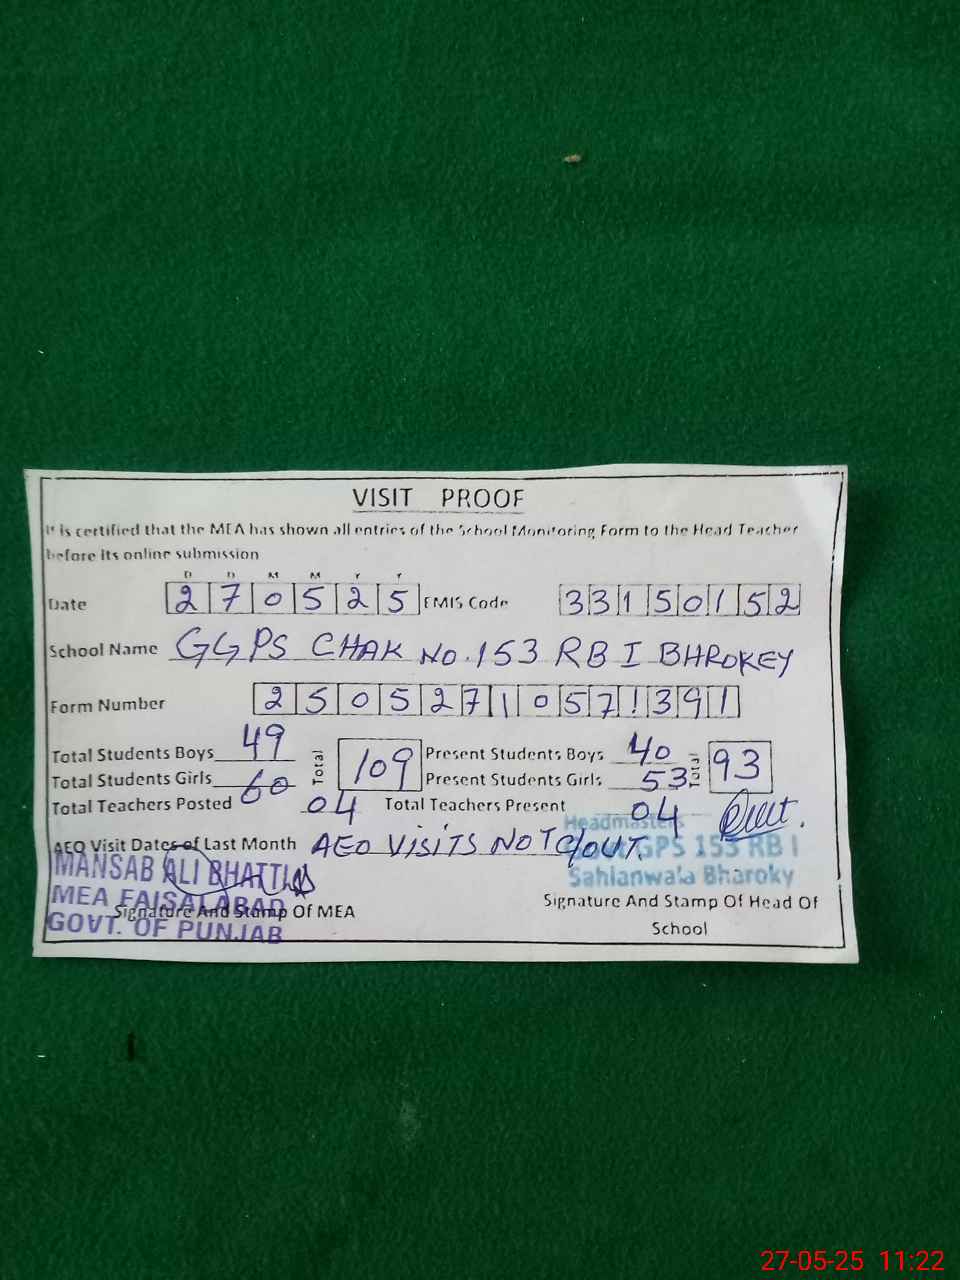 VISIT PROOF
It is certified that the MEA has shown all entries of the School Monitoring Form to the Head Teacher
before its online submission
D D M M Y Y
Date 270525 EMIS Code 33150152
School Name GGPS CHAK NO.153 RB I BHROKEY
Form Number 25052710571391
Total Students Boys 49 Total 109 Present Students Boys 40 Total 93
Total Students Girls 60 Present Students Girls 53
Total Teachers Posted 04 Total Teachers Present 04
AEO Visit Dates of Last Month AEO VISITS NOT C/OUT.
MANSAB ALI BHATTI
MEA FAISALABAD
GOVT. OF PUNJAB
Signature And Stamp Of MEA
Headmistress
GPS 153 RB I
Sahianwala Bharoky
Signature And Stamp Of Head Of
School
27-05-25 11:22